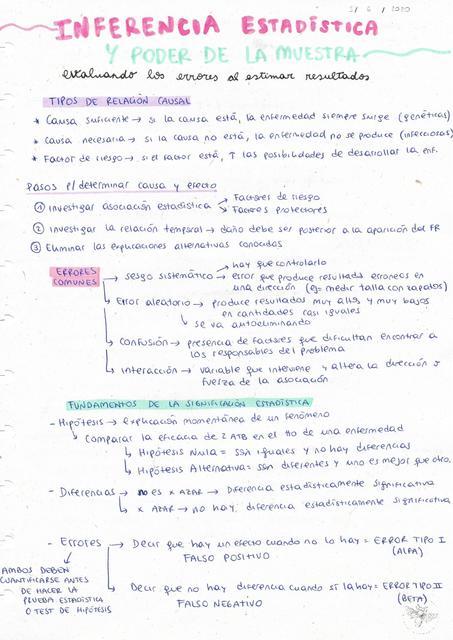 5/6/2020
INFERENCIA ESTADÍSTICA
Y PODER DE LA MUESTRA
evaluando los errores al estimar resultados
TIPOS DE RELACIÓN CAUSAL
* Causa suficiente → si la causa está, la enfermedad siempre surge (genéticas)
* Causa necesaria → si la causa no está, la enfermedad no se produce (infecciosas)
* Factor de riesgo → si el factor está, ↑ las posibilidades de desarrollar la enf.
Pasos p/determinar causa y efecto
① Investigar asociación estadística → Factores de riesgo
→ Factores protectores
② Investigar la relación temporal → daño debe ser posterior a la aparición del FR
③ Eliminar las explicaciones alternativas conocidas
ERRORES COMUNES
→ sesgo sistemático → hay que controlarlo
→ error que produce resultados erroneos en
una dirección (ej= medir talla con zapatos)
→ Error aleatorio → produce resultados muy altos y muy bajos
en cantidades casi iguales
↳ se va autoeliminando
→ Confusión → presencia de factores que dificultan encontrar a
los responsables del problema
→ Interacción → variable que interviene y altera la dirección o
fuerza de la asociación
FUNDAMENTOS DE LA SIGNIFICACIÓN ESTADÍSTICA
- Hipótesis → Explicación momentánea de un fenómeno
↳ Comparar la eficacia de 2 ATB en el tto de una enfermedad
↳ Hipótesis Nula = son iguales y no hay diferencias
↳ Hipótesis Alternativa = son diferentes y uno es mejor que otro.
- Diferencias → no es x AZAR → Diferencia estadísticamente significativa
↳ x AZAR → no hay diferencia estadísticamente significativa
- Errores → Decir que hay un efecto cuando no lo hay = ERROR TIPO I
FALSO POSITIVO (ALFA)
AMBOS DEBEN
CUANTIFICARSE ANTES
DE HACER LA
PRUEBA ESTADÍSTICA
O TEST DE HIPÓTESIS
→ Decir que no hay diferencia cuando sí la hay = ERROR TIPO II
FALSO NEGATIVO (BETA)